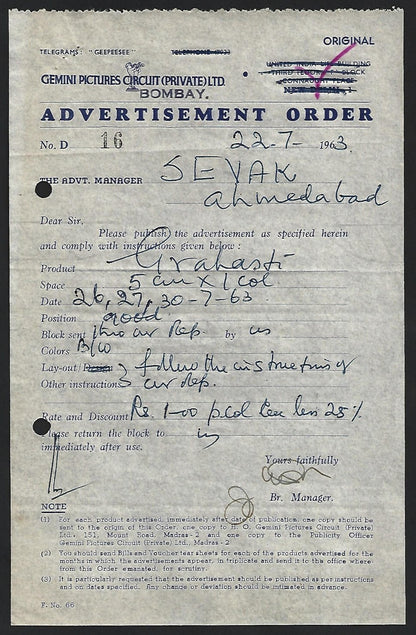 ORIGINAL
TELEGRAMS: "GEEPEESEE" TELEPHONE
UNITED INDIA LIFE BUILDING
CONNAUGHT PLACE
NEW DELHI
GEMINI PICTURES CIRCUIT (PRIVATE) LTD.
BOMBAY.
ADVERTISEMENT ORDER
No. D 16 22-7-1963
THE ADVT. MANAGER SEVAK
Ahmedabad
Dear Sir,
Please publish the advertisement as specified herein
and comply with instructions given below :
Product Grahasti
Space 5 cm x 1 col
Date 26, 27, 30-7-63
Position good
Block sent thro our Rep. by us
Colors B/W
Lay-out/ follow the instructions of
Other instructions our Rep.
Rate and Discount Rs. 1-00 p.col less 25%
Please return the block to us
immediately after use.
Yours faithfully
Br. Manager.
NOTE
(1) For each product advertised, immediately after date of publication, one copy should be
sent to the origin of this Order, one copy to H. O. Gemini Pictures Circuit (Private)
Ltd., 151, Mount Road, Madras-2 and one copy to the Publicity Officer
Gemini Pictures Circuit (Private) Ltd., Madras-2
(2) You should send Bills and Voucher tear sheets for each of the products advertised for the
months in which the advertisements appear, in triplicate and send it to the office where
from this Order emanated, for scrutiny.
(3) It is particularly requested that the advertisement should be published as per instructions
and on dates specified. Any change or deviation should be intimated in advance.
F. No. 66